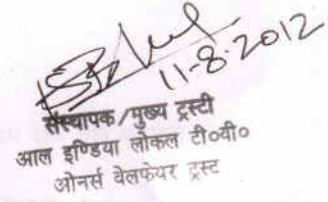 11-8-2012
संस्थापक/मुख्य ट्रस्टी
आल इण्डिया लोकल टी०वी०
ओनर्स वेलफेयर ट्रस्ट